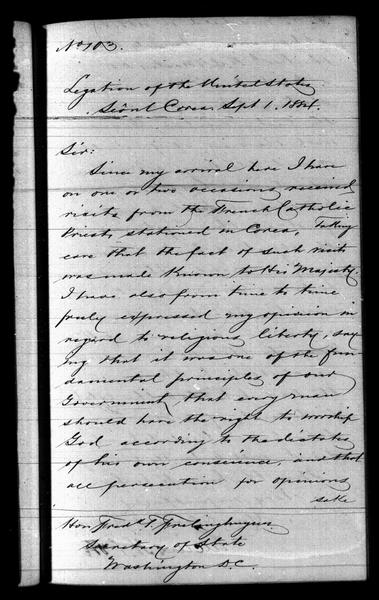 No 103.
Legation of the United States
Seoul Corea, Sept 1. 1884.
Sir:
Since my arrival here I have
on one or two occasions received
visits from the French Catholic
Priests stationed in Corea, Taking
care that the fact of such visits
was made known to His Majesty.
I have also from time to time
freely expressed my opinion in
regard to religious liberty, say
ing that it was one of the fun
damental principles of our
Government, that every man
should have the right to worship
God according to the dictates
of his own conscience, and that
all persecution for opinions
sake
Hon Fredk T. Frelinghuysen
Secretary of State
Washington D.C.